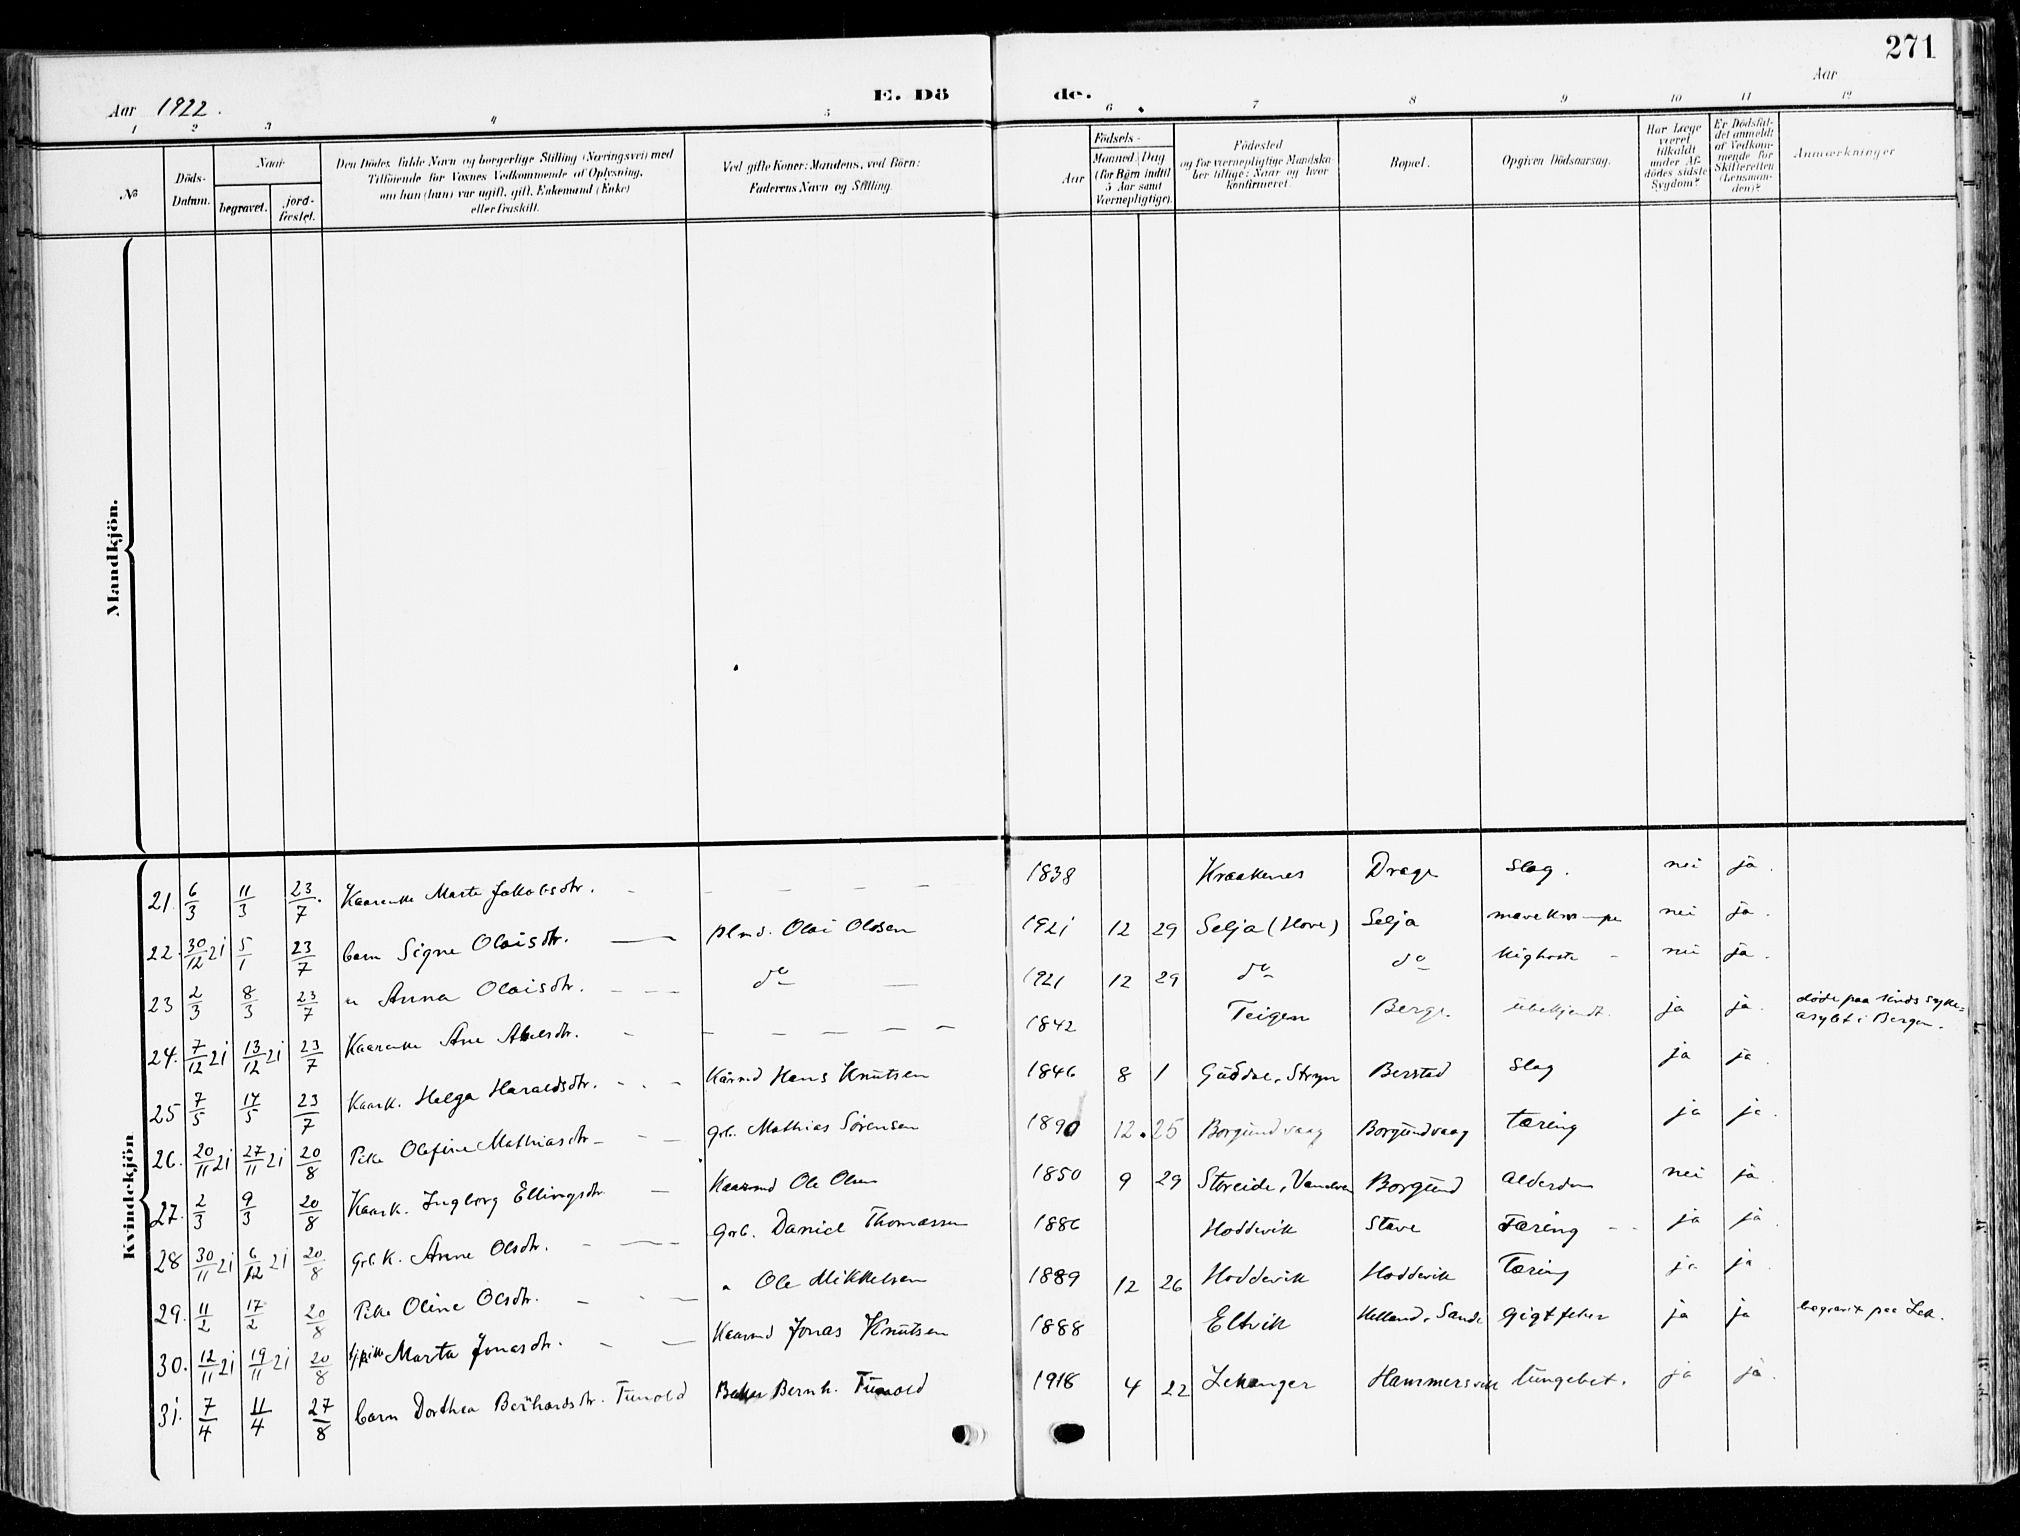 271
Aar 1922.
E. Dö de.
Aar
1 2 3 4 5 6 7 8 9 10 11 12
No
Döds-Datum.
Naar
begravet.
jord-fæstet.
Den Dödes fulde Navn og borgerlige Stilling (Næringsvei) med
Tilföiende for Voxnes Vedkommende af Oplysning,
om han (hun) var ugift, gift, Enkemand (Enke)
eller fraskilt.
Ved gifte Koner: Mandens, ved Börn:
Faderens Navn og Stilling.
Födsels-
Aar
Maaned Dag
(for Börn indtil
5 Aar samt
Værnepligtige).
Födested
og for værnepligtige Mandska-
ber tillige: Naar og hvor
konfirmeret.
Bopæl.
Opgiven Dödsaarsag.
Har Læge
været
tilkaldt
under Af-
dödes sidste
Sygdom?
Er Dödsfal-
det anmeldt
af Vedkom-
mende for
Skifteretten
(Lensman-
den)?
Anmærkninger
Mandkjön.
Kvindekjön
21. 6/3 11/3 23/7. Kaarenke Marte Jakobsdtr. - - - - - - 1838 Kraakenes Drage Slag. nei ja.
22. 30/12 21 5/1 23/7 barn Signe Olaisdtr. Olai Olsen 1921 12 29 Selja (Hove) Selja nei ja.
23 2/3 8/3 23/7 " Anna Olaisdtr. do 1921 12 29 do do Kighoste nei ja.
24. 7/12 21 13/12 21 23/7 Kaarenke Ane Abelsdtr. - - - - - - 1842 Teigen Berge. ubekjendt. ja ja. døde paa sinds syke=
asylet i Bergen.
25 7/5 14/5 23/7 Kaark. Helga Haraldsdtr. Kårmd Hans Knutsen 1846 8 1 Stryn Berstad Slag ja ja.
26. 20/11 21 27/11 21 20/8 Pike Olefine Mathiasdtr grb. Mathias Sörensen 1890 12. 25 Borgundvaag Borgundvaag Tæring ja ja.
27. 2/3 9/3 20/8 Kaark. Ingborg Ellingsdtr. Kaarmd Ole Olsen 1850 9 29 Storeide, Borgund Alderdom nei ja.
28 30/11 21 6/12 21 20/8 Grb.K. Anne Olsdtr. Grb. Daniel Thomassen 1886 Hoddevik Stave Tæring ja ja.
29. 11/2 17/2 20/8 Pike Oline Olsdtr. " Ole Mikkelsen 1889 12 26 Hoddevik Hoddevik Tæring ja ja.
30. 12/11 21 19/11 21 20/8 Marta Jonasdtr. Kaarmd Jonas Knutsen 1888 Eltvik Helland, Sande Gigtfeber ja ja begravet paa Lek.
31. 7/4 11/4 27/8 barn Dorthea Bernhardsdtr. Tunold Baker Bernh. Tunold 1918 4 22 Lekanger Hammersvik lungebet. ja ja.